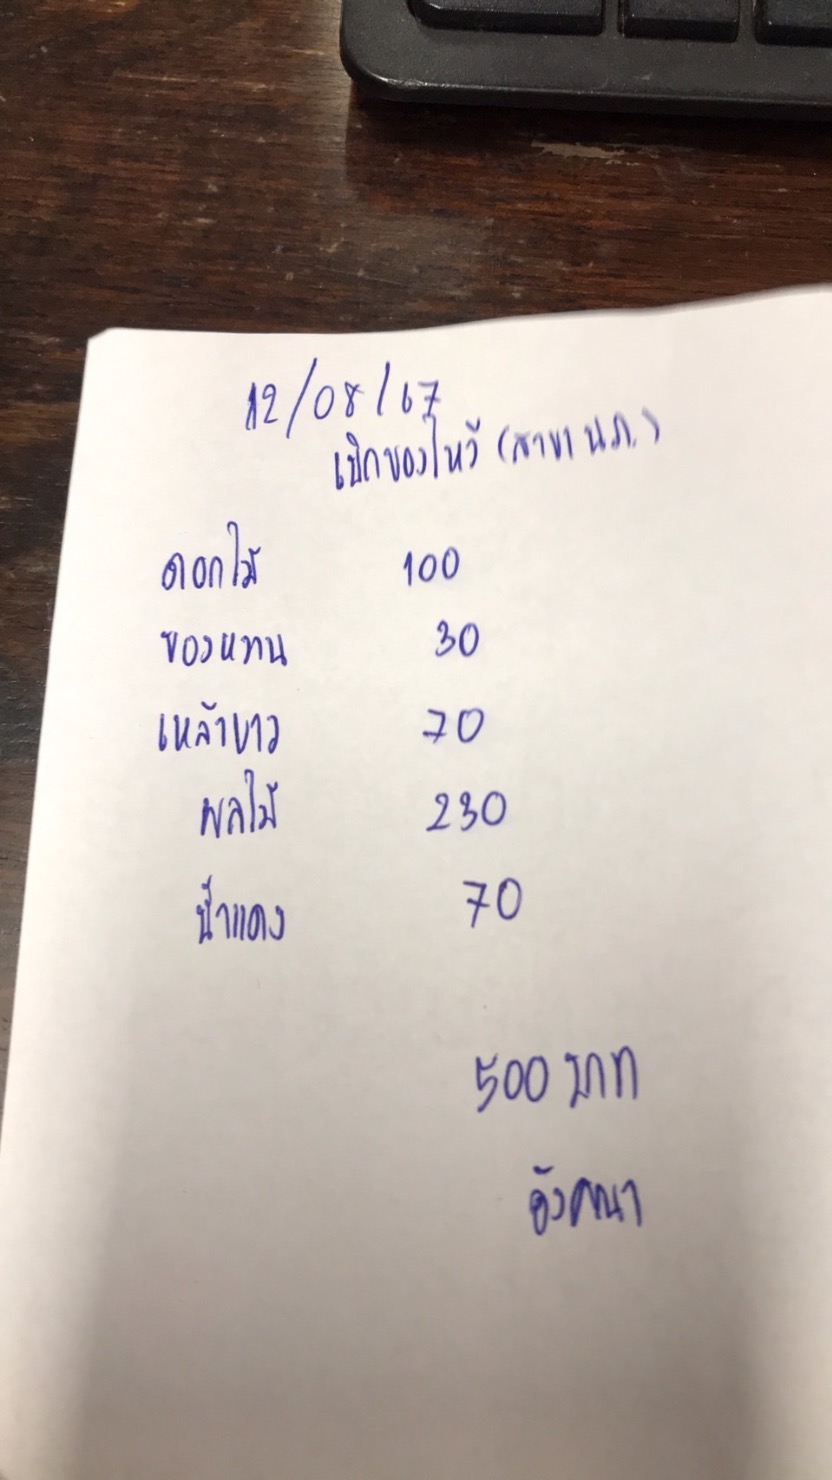 12/08/67
เบิกของไหว้ (สาขา น.ภ.)
ดอกไม้ 100
ของแทน 30
เหล้าขาว 70
ผลไม้ 230
น้ำแดง 70
500 บาท
อังคณา